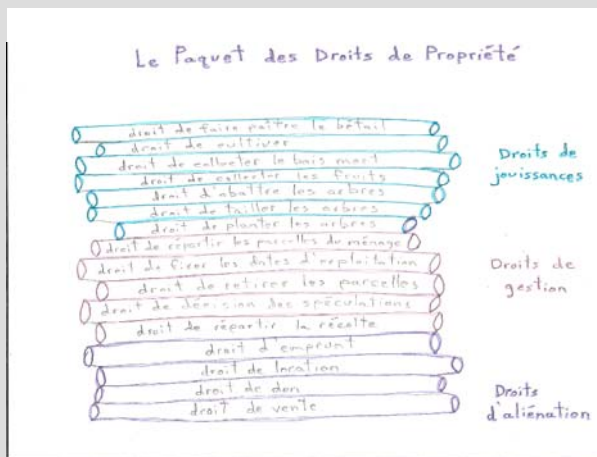 Le Paquet des Droits de Propriété
droit de faire paître le bétail
droit de cultiver
droit de collecter le bois mort
droit de collecter les fruits
droit d'abattre les arbres
droit de tailler les arbres
droit de planter les arbres
droit de répartir les parcelles du ménage
droit de fixer les dates d'exploitation
droit de retirer les parcelles
droit de décision des spéculations
droit de répartir la récolte
droit d'emprunt
droit de location
droit de don
droit de vente
Droits de
jouissances
Droits de
gestion
Droits
d'aliénation